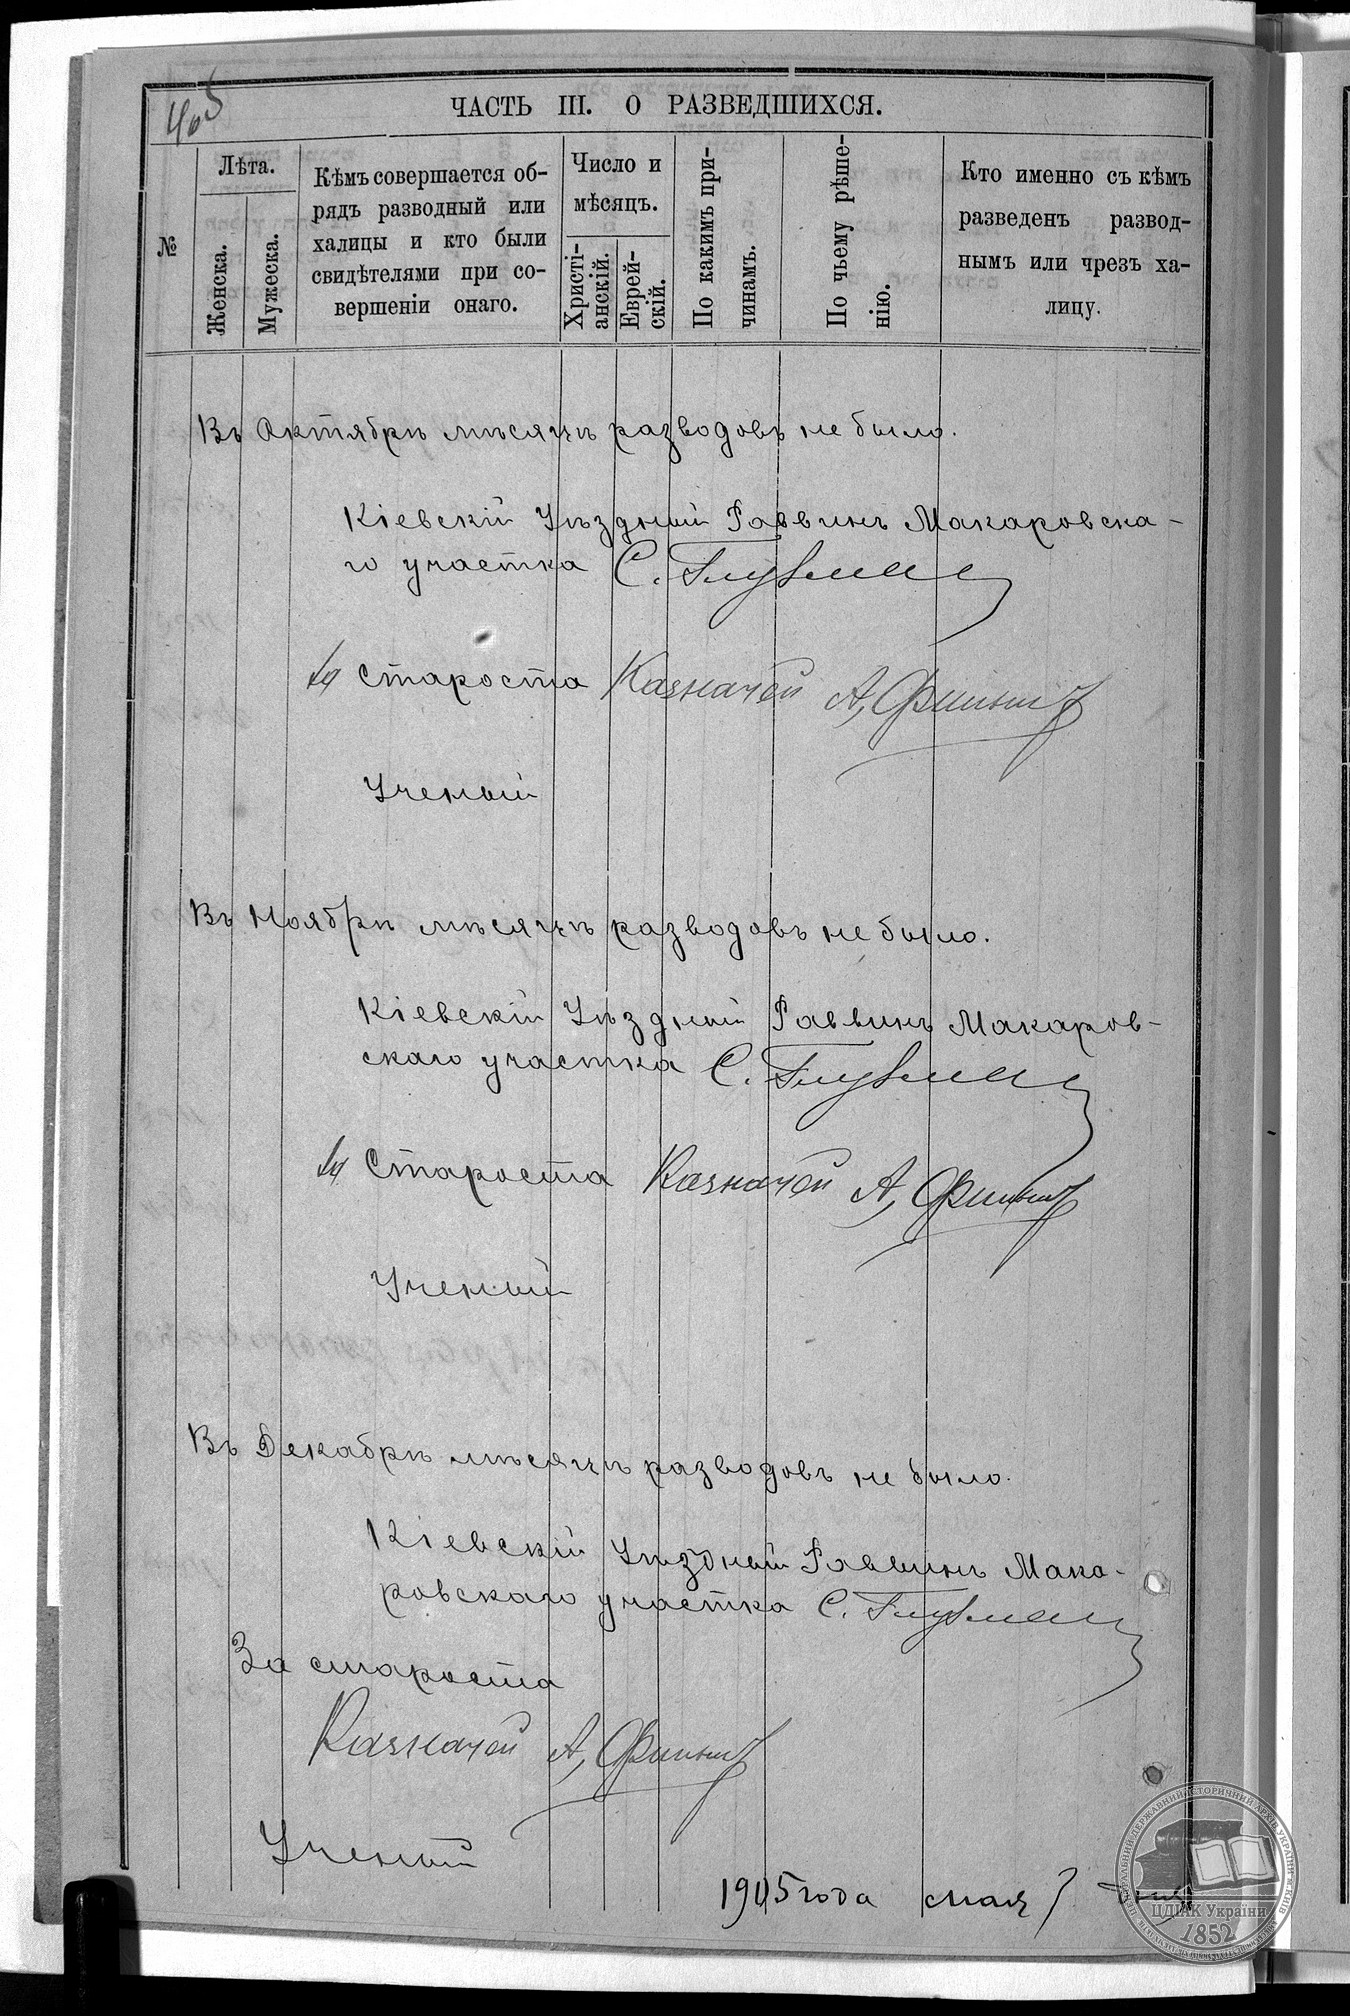 405
ЧАСТЬ III. О РАЗВЕДШИХСЯ.
№
Лѣта.
Женска.
Мужеска.
Кѣмъ совершается об-
рядъ разводный или
халицы и кто были
свидѣтелями при со-
вершеніи онаго.
Число и
мѣсяцъ.
Христі-
анскій.
Еврей-
скій.
По какимъ при-
чинамъ.
По чьему рѣше-
нію.
Кто именно съ кѣмъ
разведенъ развод-
нымъ или чрезъ ха-
лицу.
Въ Октябрѣ мѣсяцѣ разводовъ не было.
Кіевскій Уѣздный Раввинъ Макаровска-
го участка С. Глузман
За Староста Казначей А,
Ученый
Въ Ноябрѣ мѣсяцѣ разводовъ не было.
Кіевскій Уѣздный Раввинъ Макаров-
скаго участка С. Глузман
За Староста Казначей А,
Ученый
Въ Декабрѣ мѣсяцѣ разводовъ не было.
Кіевскій Уѣздный Раввинъ Мака-
ровскаго участка С. Глузман
За староста
Казначей А,
Ученый
1905 года мая 7 дня
ЦЕНТРАЛЬНИЙ ДЕРЖАВНИЙ ІСТОРИЧНИЙ АРХІВ УКРАЇНИ В М. КИЇВ
ЦДІАК України
1852